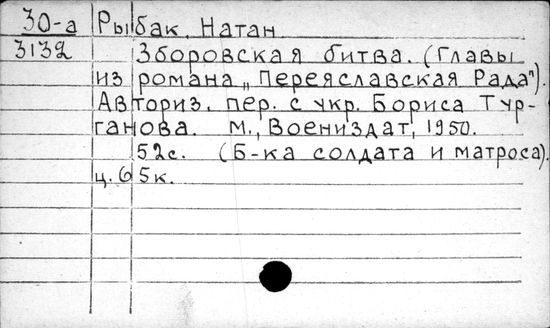 30-а Рыбак, Натан
3132 Зборовская битва. (Главы
из романа „Переяславская Рада").
Авториз. пер. с укр. Бориса Тур-
ганова. М., Воениздат, 1950.
52с. (Б-ка солдата и матроса).
ц. 65к.